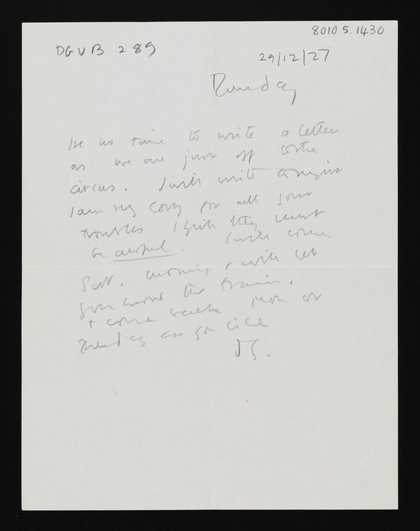 8010 5.1430
DGVB 289
29/12/27
Thursday
no time to write a letter
as we are just off to the
circus. I will write tonight
I am very sorry for all your
troubles I think they must
be awful. I will come
Sat. morning & will let
you know the train.
& come back Mon or
Tuesday as you like
DG.